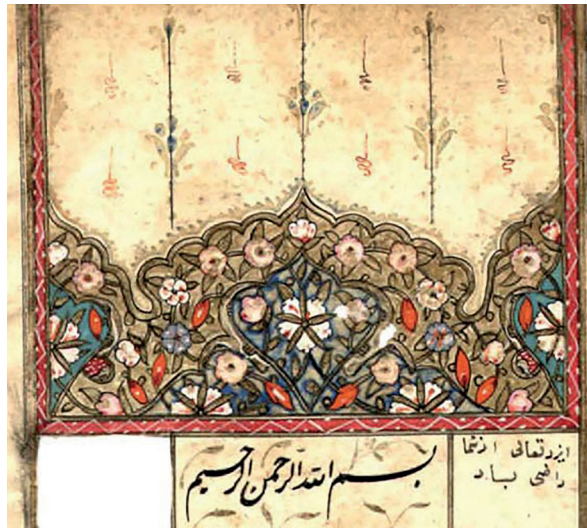 ایزد تعالی از شما
راضی
بسم الله الرحمن الرحیم